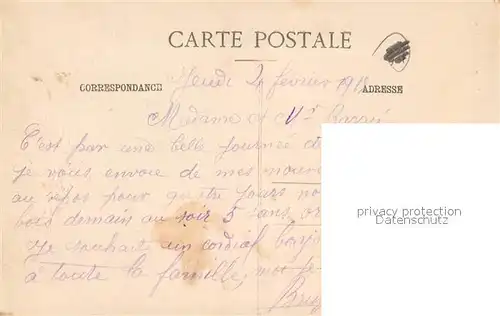 CARTE POSTALE
CORRESPONDANCE
ADRESSE
Jeudi 2 février 191
Madame et Mr
C'est par une belle journée de
je vous envoie de mes
au repos pour quatre jours no
bois demain au soir 5 sans or
Je souhaite un cordial bonjo
à toute la famille, mos
privacy protection
www.oldthing.de